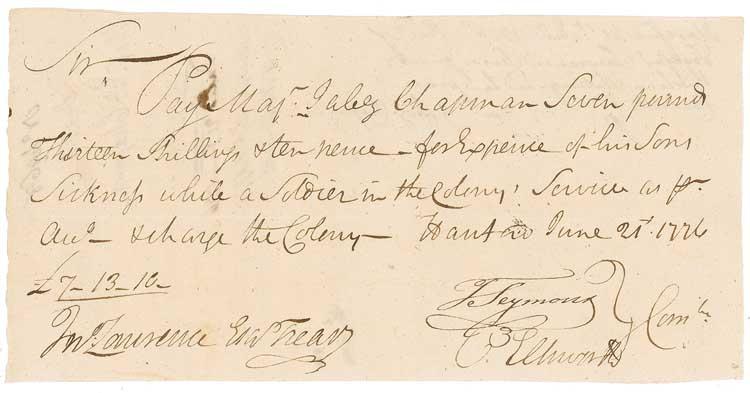 Sir
Pay Majr. Jabez Chapman Seven pound
Thirteen Shillings & ten pence – for Expence of his Sons
Sickness while a Soldier in the Colony's Service as pr.
Acct– & charge the Colony – Hartford June 21st. 1776
£7–13–10–
T Seymour
Jno. Lawrence Esqr Treasr
O Ellsworth
Comtee